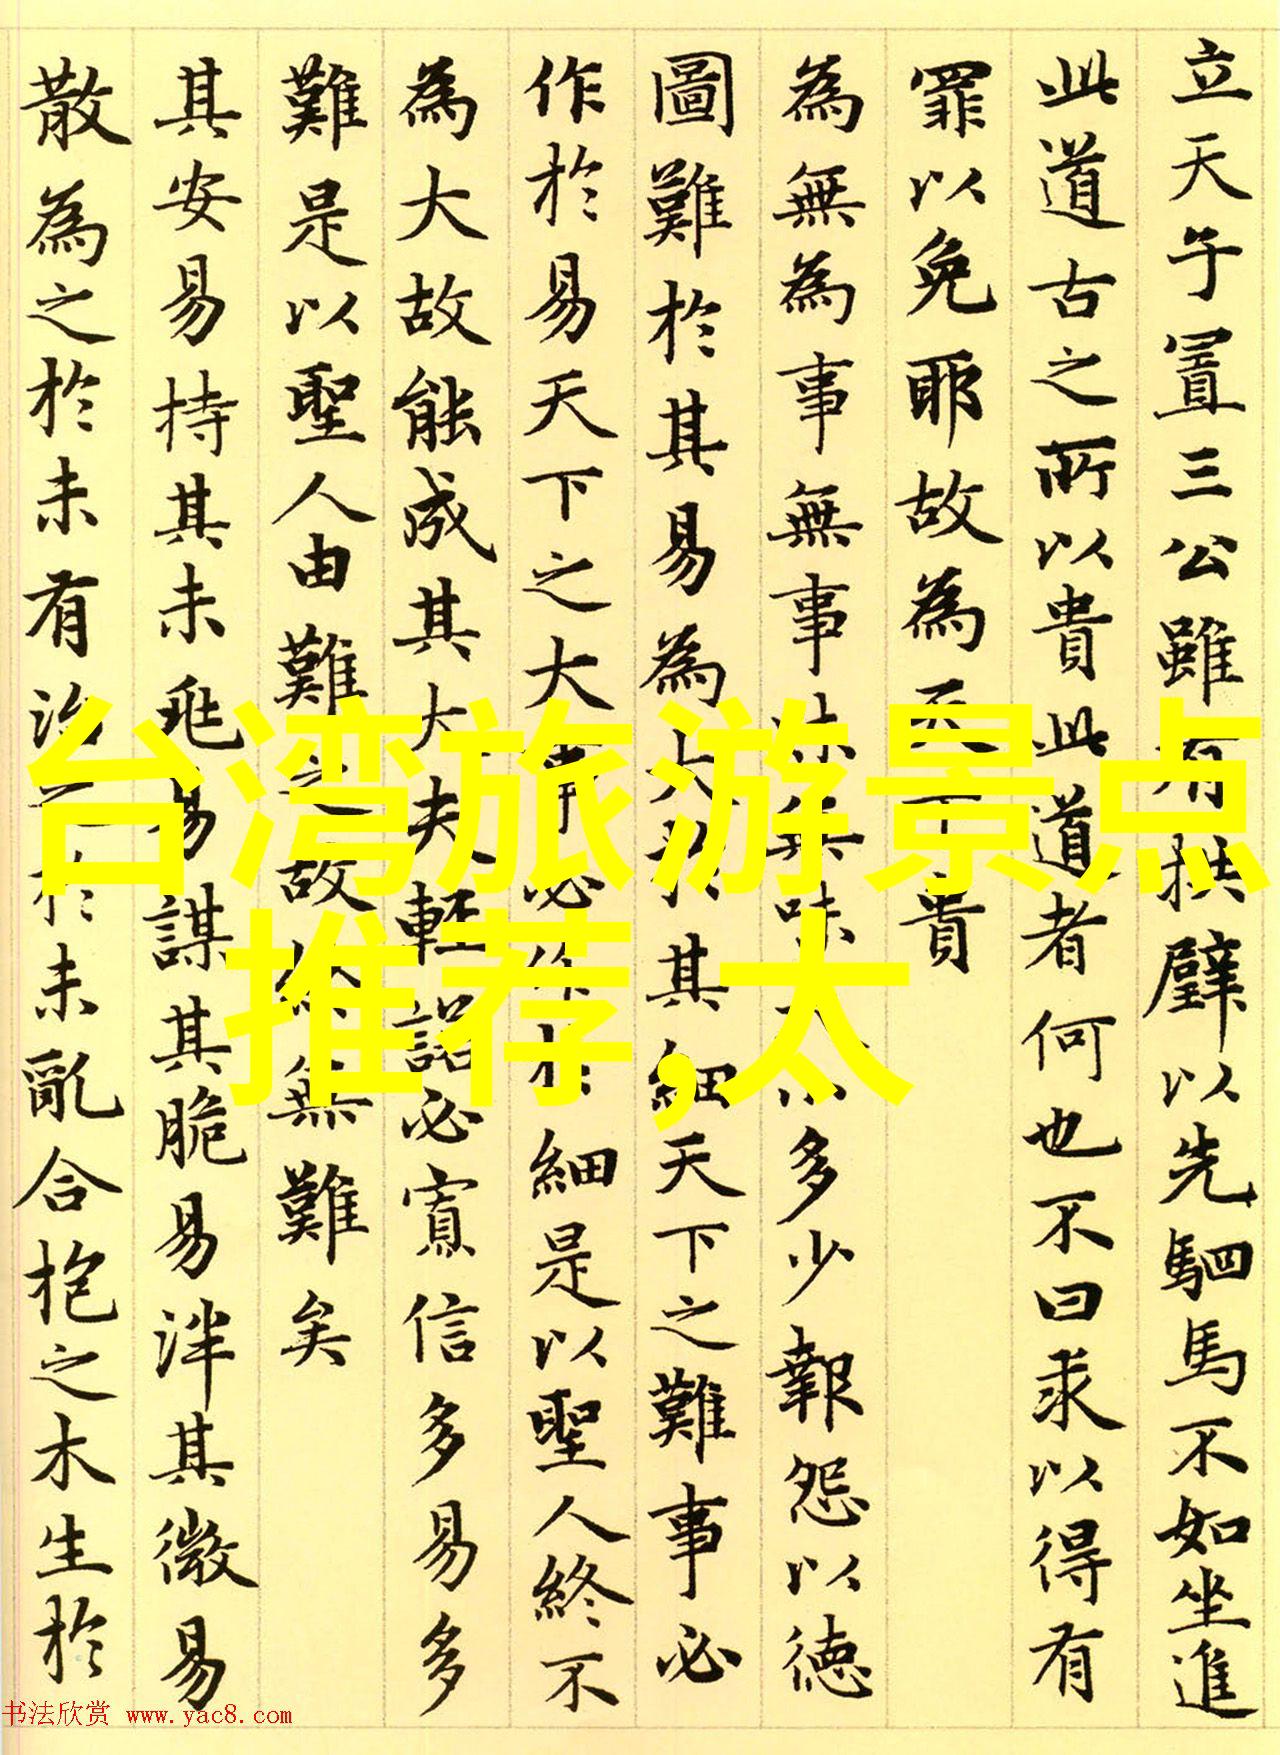 立天子置三公雖有拱璧以先駟馬不如坐進
此道古之所以貴此道者何也不曰求以得有
罪以免耶故為天下貴
為無為事無事味無味大小多少報怨以德
圖難於其易為大於其細天下之難事必
作於易天下之大事必作於細是以聖人終不
為大故能成其大夫輕諾必寡信多易多
難是以聖人由難之故終無難矣
其安易持其未兆易謀其脆易泮其微易
散為之於未有治之於未亂合抱之木生於
台湾旅游景点
推荐,太
书法欣赏 www.yac8.com